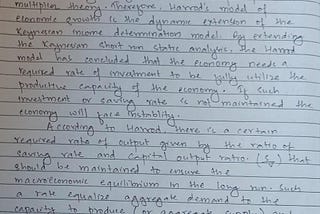 multiplier theory. Therefore, Harrod's model of
economic growth is the dynamic extension of the
Keynesian income determination model. By extending
the Keynesian short run static analysis, the Harrod
model has concluded that the economy needs a
required rate of investment to be fully utilize the
productive capacity of the economy. If such
investment or saving rate is not maintained the
economy will face instability.
According to Harrod, there is a certain
required rate of output given by the ratio of
saving rate and capital output ratio. that
should be maintained to ensure the
macroeconomic equilibrium in the long run. Such
a rate equalize aggregate demand to the
capacity to produce (or aggregate supply